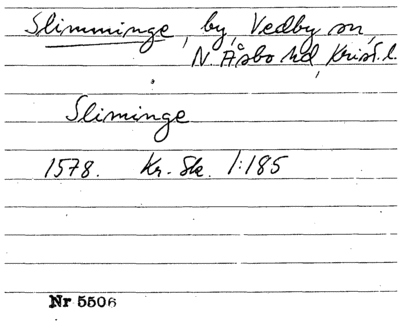 Slimminge, by, Vedby sn,
N. Åsbo hd, Krist. l.
Sliminge
1578. Kr. Sk. 1:185
Nr 5506